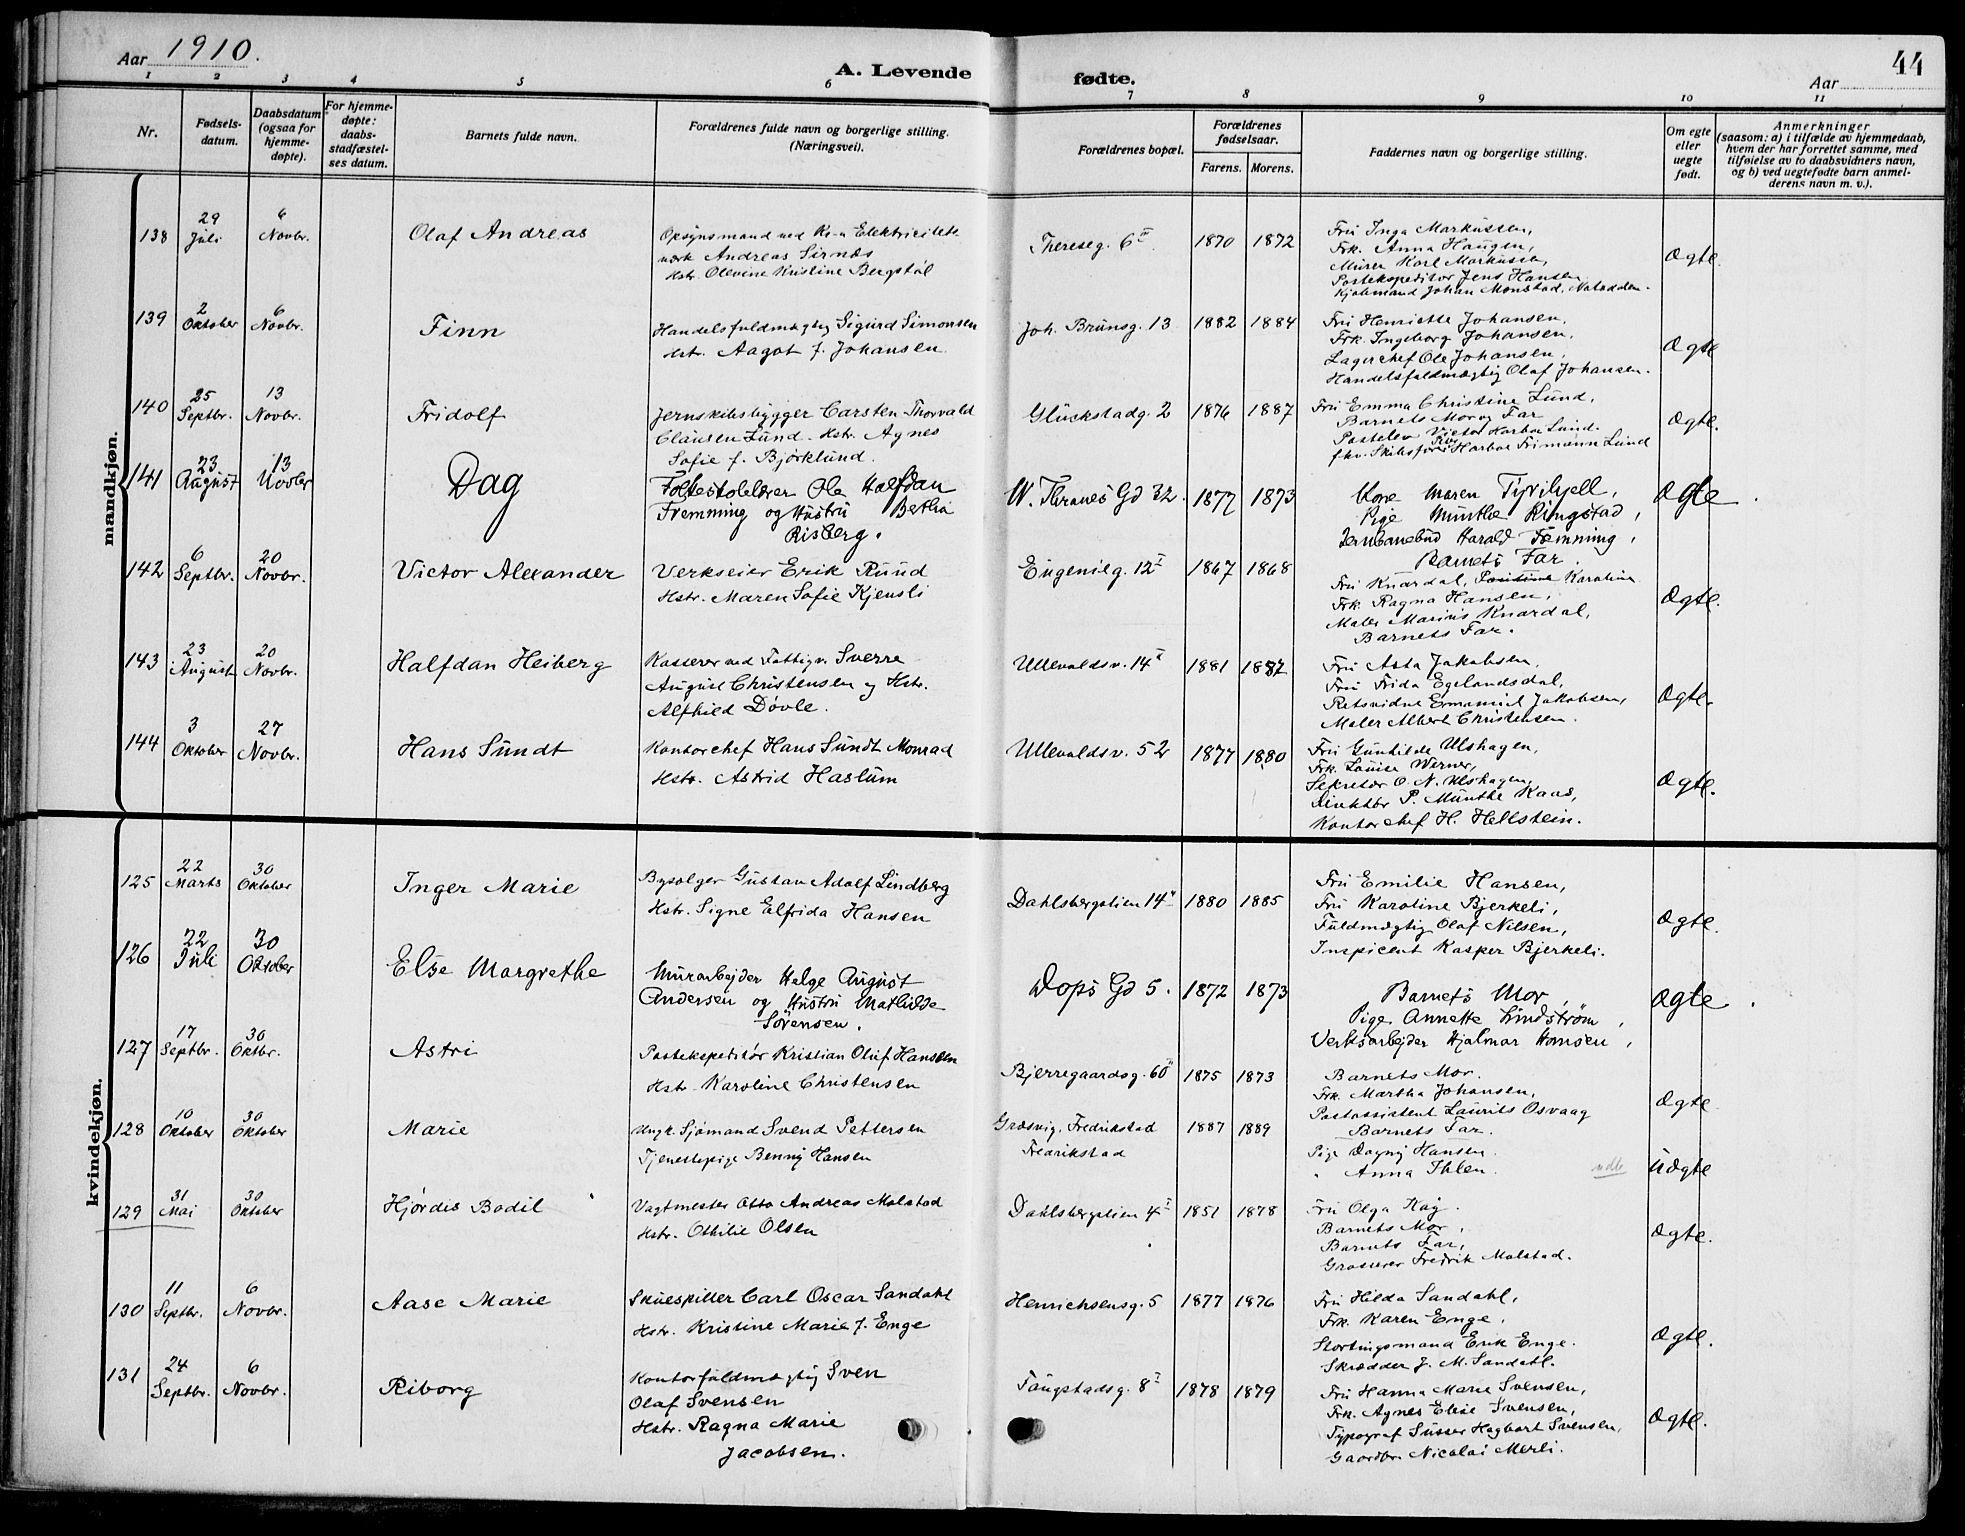 Aar 1910.
A. Levende
1 2 3 4 5 6
Nr.
Fødsels-
datum.
Daabsdatum
(ogsaa for
hjemme-
døpte).
For hjemme-
døpte:
daabs-
stadfæstel-
ses datum.
Barnets fulde navn.
Forældrenes fulde navn og borgerlige stilling.
(Næringsvei).
fødte.
Aar
44
7 8 9 10 11
Forældrenes bopæl.
Forældrenes
fødselsaar.
Farens. Morens.
Faddernes navn og borgerlige stilling.
Om egte
eller
uegte
født.
Anmerkninger
(saasom: a) i tilfælde av hjemmedaab,
hvem der har forrettet samme, med
tilføielse av to daabsvidners navn,
og b) ved uegtefødte barn anmel-
derens navn m. v.).
mandkjøn.
138
29 Juli
6 Novbr.
Olaf Andreas
Opsynsmand ved Kr.a Elektricitets-
verk Andreas Sirnæs
Hstr. Olevine Kristine Bergstøl
Thereseg. 6 III
1870 1872
Fru Inga Markussen,
Frk. Anna Haugen,
Murer Karl Markussen,
Postekspeditør Jens Hansen
Kjøbmand Johan Monstad, Notodden.
Ægte.
139
2 Oktober
6 Novbr.
Finn
Handelsfuldmægtig Sigurd Simonsen
Hstr. Aagot f. Johansen.
Joh. Brunsg. 13
1882 1884
Fru Henriette Johansen,
Frk. Ingeborg Johansen,
Lagerchef Ole Johansen,
Handelsfuldmægtig Olaf Johansen.
Ægte
140
25 Septbr.
13 Novbr.
Fridolf
Jernskibsbygger Carsten Thorvald
Clausen Lund. Hstr. Agnes
Sofie f. Bjørklund.
Glückstadg. 2
1876 1887
Fru Emma Christine Lund,
Barnets Mor og Far
Postelev Victor Harboe Lund.
fhv. Skibsfører Harboe Frimann Lund
Ægte.
141
23 August
13 Novbr
Dag
Folkeskolelærer Ole Halfdan
Fremming og Hustru Bethia
Risberg.
W. Thranes Gd 32.
1877 1873
Kone Maren Tyrihjell,
Pige Munthe Ringstad,
Jernbanebud Harald Fremming,
Barnets Far.
Ægte.
142
6 Septbr.
20 Novbr.
Victor Alexander
Verkseier Erik Ruud
Hstr. Maren Sofie Kjensli
Eugenieg. 12 I
1867 1868
Fru Knardal, Karoline
Frk. Ragna Hansen,
Maler Marius Knardal,
Barnets Far.
Ægte.
143
23 August
20 Novbr.
Halfdan Heiberg
Kasserer ved Fattigv. Sverre
August Christensen og Hstr.
Alfhild Døvle.
Ullevoldsv. 14 II
1881 1882
Fru Asta Jakobsen,
Fru Frida Egelandsdal,
Retsvidne Emanuel Jakobsen,
Maler Albert Christensen.
Ægte.
144
3 Oktober
27 Novbr.
Hans Sundt
Kontorchef Hans Sundt Monrad
Hstr. Astrid Haslum
Ullevoldsv. 52
1877 1880
Fru Gunhilde Ulshagen,
Frk. Louise Werner,
Sekretær O. N. Ulshagen,
Direktør P. Munthe Kaas,
Kontorchef H. Hellstein.
Ægte.
kvindekjøn.
125
22 Marts
30 Oktober
Inger Marie
Bysælger Gustav Adolf Lindberg
Hstr. Signe Elfrida Hansen
Dahlsbergstien 14 II
1880 1885
Fru Emilie Hansen,
Fru Karoline Bjerkeli,
Fuldmægtig Olaf Nilsen,
Inspicent Kasper Bjerkeli.
Ægte.
126
22 Juli
30 Oktober
Else Margrethe
Murarbejder Helge August
Andersen og Hustru Mathilde
Sörensen.
Dops Gd 5.
1872 1873
Barnets Mor,
Pige Annette Lindström,
Verksarbejder Hjalmar Hansen,
Ægte.
127
17 Septbr.
30 Oktbr.
Astri
Postekspeditør Kristian Oluf Hansen
Hstr. Karoline Christensen
Bjerregaardsg. 60 II
1875 1873
Barnets Mor.
Frk. Martha Johansen,
Postassistent Laurits Osvaag
Barnets Far.
Ægte.
128
10 Oktober
30 Oktober
Marie
Ungk. Sjømand Svend Pettersen
Tjenestepige Benny Hansen
Græsvig, Fredrikstad
Fredrikstad
1887 1889
Pige Dagny Hansen
" Anna Ihlen.
Uægte
129
31 Mai
30 Oktober
Hjørdis Bodil
Vagtmester Otto Andreas Molstad
Hstr. Othilie Olsen
Dahlsbergstien 4 I
1851 1878
Fru Olga Kag.
Barnets Mor,
Barnets Far,
Grosserer Fredrik Molstad.
Ægte.
130
11 Septbr.
6 Novbr.
Aase Marie
Skuespiller Carl Oscar Sandahl
Hstr. Kristine Marie f. Enge
Henrichsensg. 5
1877 1876
Fru Hilda Sandahl,
Frk. Karen Enge,
Stortingsmand Erik Enge.
Skrædder J. M. Sandahl.
Ægte.
131
24 Septbr.
6 Novbr.
Riborg
Kontorfuldmægtig Sven
Olaf Svensen
Hstr. Ragna Marie
Jacobsen.
Taugstadsg. 8 I
1878 1879
Fru Hanna Marie Svensen,
Frk. Agnes Elise Svensen,
Typograf Susser Hagbart Svensen,
Gaardbr. Nicolai Merli.
Ægte.